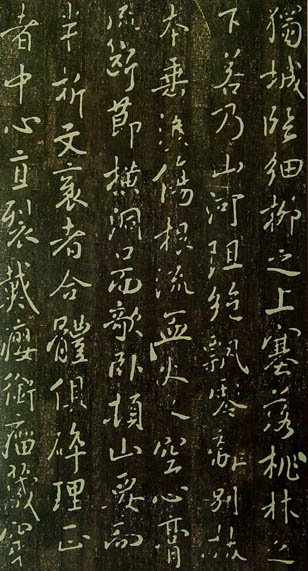 獨城臨細柳之上塞落桃林之
下若乃山河阻絕飄零離別拔
本垂淚傷根流血火入空心膏
流斷節橫洞口而欹臥頓山要而
半折文衺者合體俱碎理正
者中心直裂戴癭銜瘤藏穿